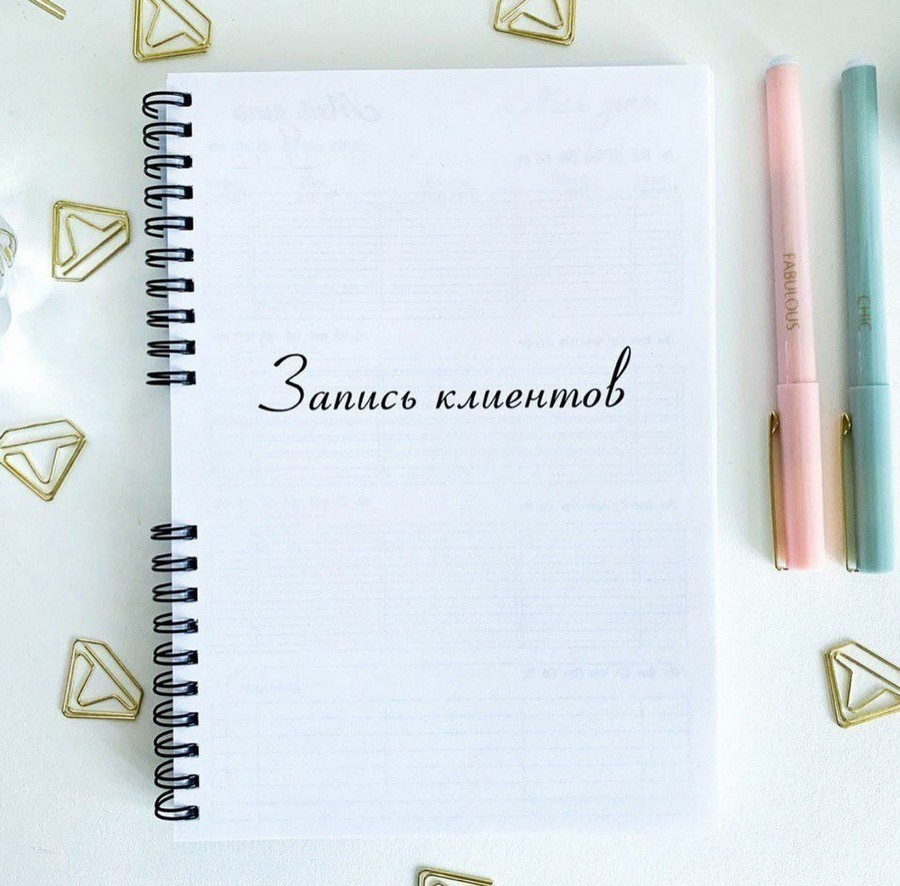 Запись клиентов
FABULOUS
CHIC